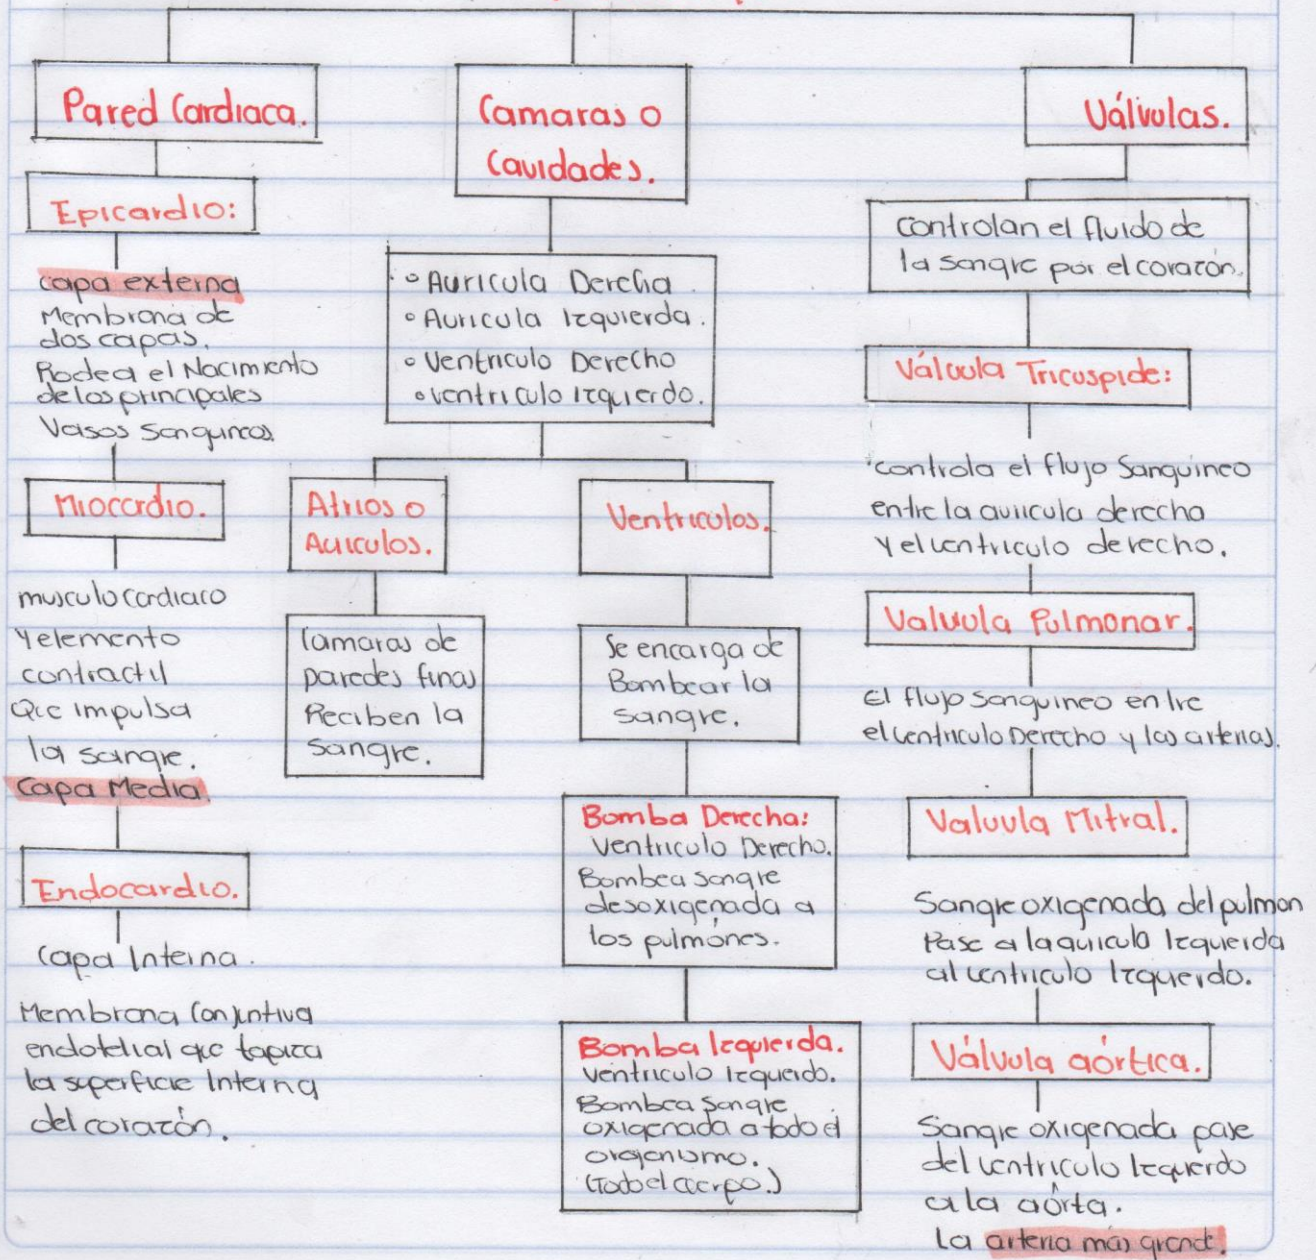 Pared Cardiaca.
Epicardio:
capa externa
Membrana de
dos capas.
Rodea el Nacimiento
de los principales
Vasos Sanguineos
Miocardio.
musculo cardiaco
y elemento
contractil
Que impulsa
la sangre.
Capa Media.
Endocardio.
Capa Interna.
Membrana Conjuntiva
endotelial que tapiza
la superficie Interna
del corazón.
Camaras o
Cavidades.
Auricula Derecha.
Auricula Izquierda.
Ventriculo Derecho
ventriculo izquierdo.
Atrios o
Auiculos.
Camaras de
paredes finas
Reciben la
Sangre.
Ventriculos.
Se encarga de
Bombear la
sangre.
Bomba Derecha:
Ventriculo Derecho.
Bombea sangre
desoxigenada a
los pulmónes.
Bomba Izquierda.
Ventriculo Izquierdo.
Bombea Sangre
oxigenada a todo el
organismo.
(Todo el cuerpo.)
Válvulas.
Controlan el fluido de
la sangre por el corazón.
Válvula Tricuspide:
controla el flujo Sanguineo
entre la auricula derecha
y el ventriculo derecho.
Valvula Pulmonar.
El flujo sanguineo entre
el ventriculo Derecho y las arterias.
Valvula Mitral.
Sangre oxigenada del pulmon
Pase a la auricula Izquierda
al ventriculo Izquierdo.
Válvula aórtica.
Sangre oxigenada pase
del ventriculo Izquierdo
a la aórta.
La arteria más grande.